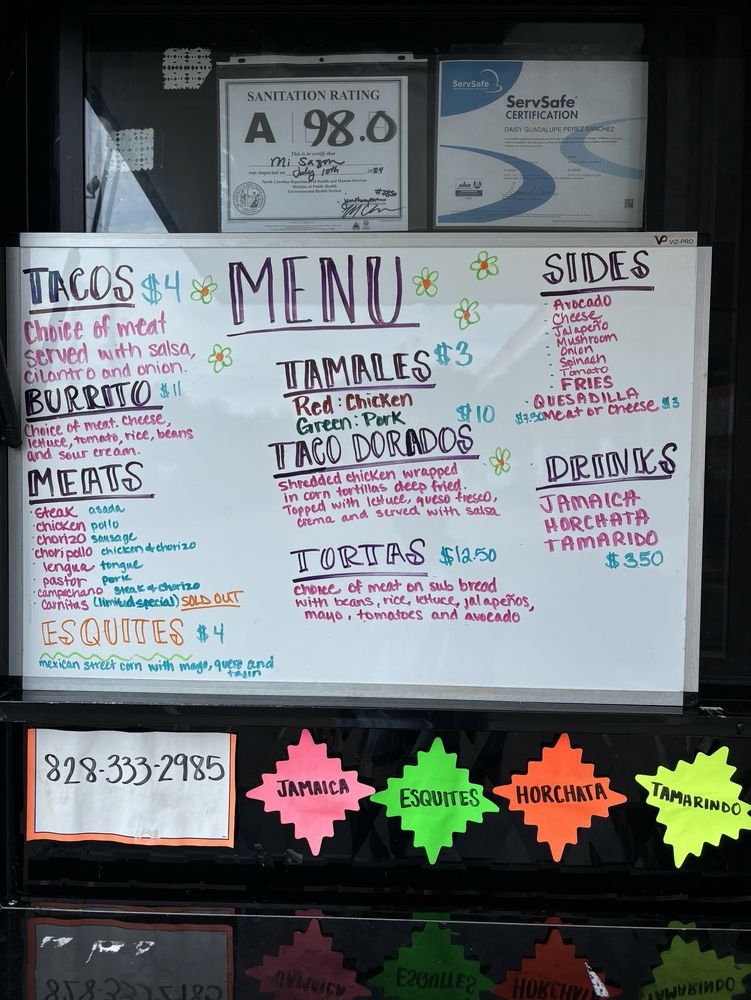 SANITATION RATING
A 98.0
This is to certify that
Mi Sazon
was inspected on July 10th 2024
North Carolina Department of Health and Human Services
Division of Public Health
Environmental Health Section
ServSafe
ServSafe®
CERTIFICATION
DAISY GUADALUPE PEREZ SANCHEZ
VIZ-PRO
TACOS $4
Choice of meat
served with salsa,
cilantro and onion.
BURRITO $11
Choice of meat. cheese,
lettuce, tomato, rice, beans
and sour cream.
MEATS
· steak asada
· chicken pollo
· chorizo sausage
· choripollo chicken & chorizo
· lengua tongue
· pastor pork
· campechano steak & chorizo
· carnitas (limited special) SOLD OUT
ESQUITES $4
mexican street corn with mayo, queso and
tajin
MENU
TAMALES $3
Red: Chicken
Green: Pork
TACO DORADOS $10
shredded chicken wrapped
in corn tortillas deep fried.
Topped with lettuce, queso fresco,
crema and served with salsa
TORTAS $12.50
choice of meat on sub bread
with beans, rice, lettuce, jalapeños,
mayo, tomatoes and avocado
SIDES
· Avocado
· Cheese
· Jalapeño
· Mushroom
· Onion
· Spinash
· Tomato
· FRIES
· QUESADILLA
$7.50 Meat or cheese $3
DRINKS
JAMAICA
HORCHATA
TAMARIDO
$3.50
828-333-2985
JAMAICA
ESQUITES
HORCHATA
TAMARINDO